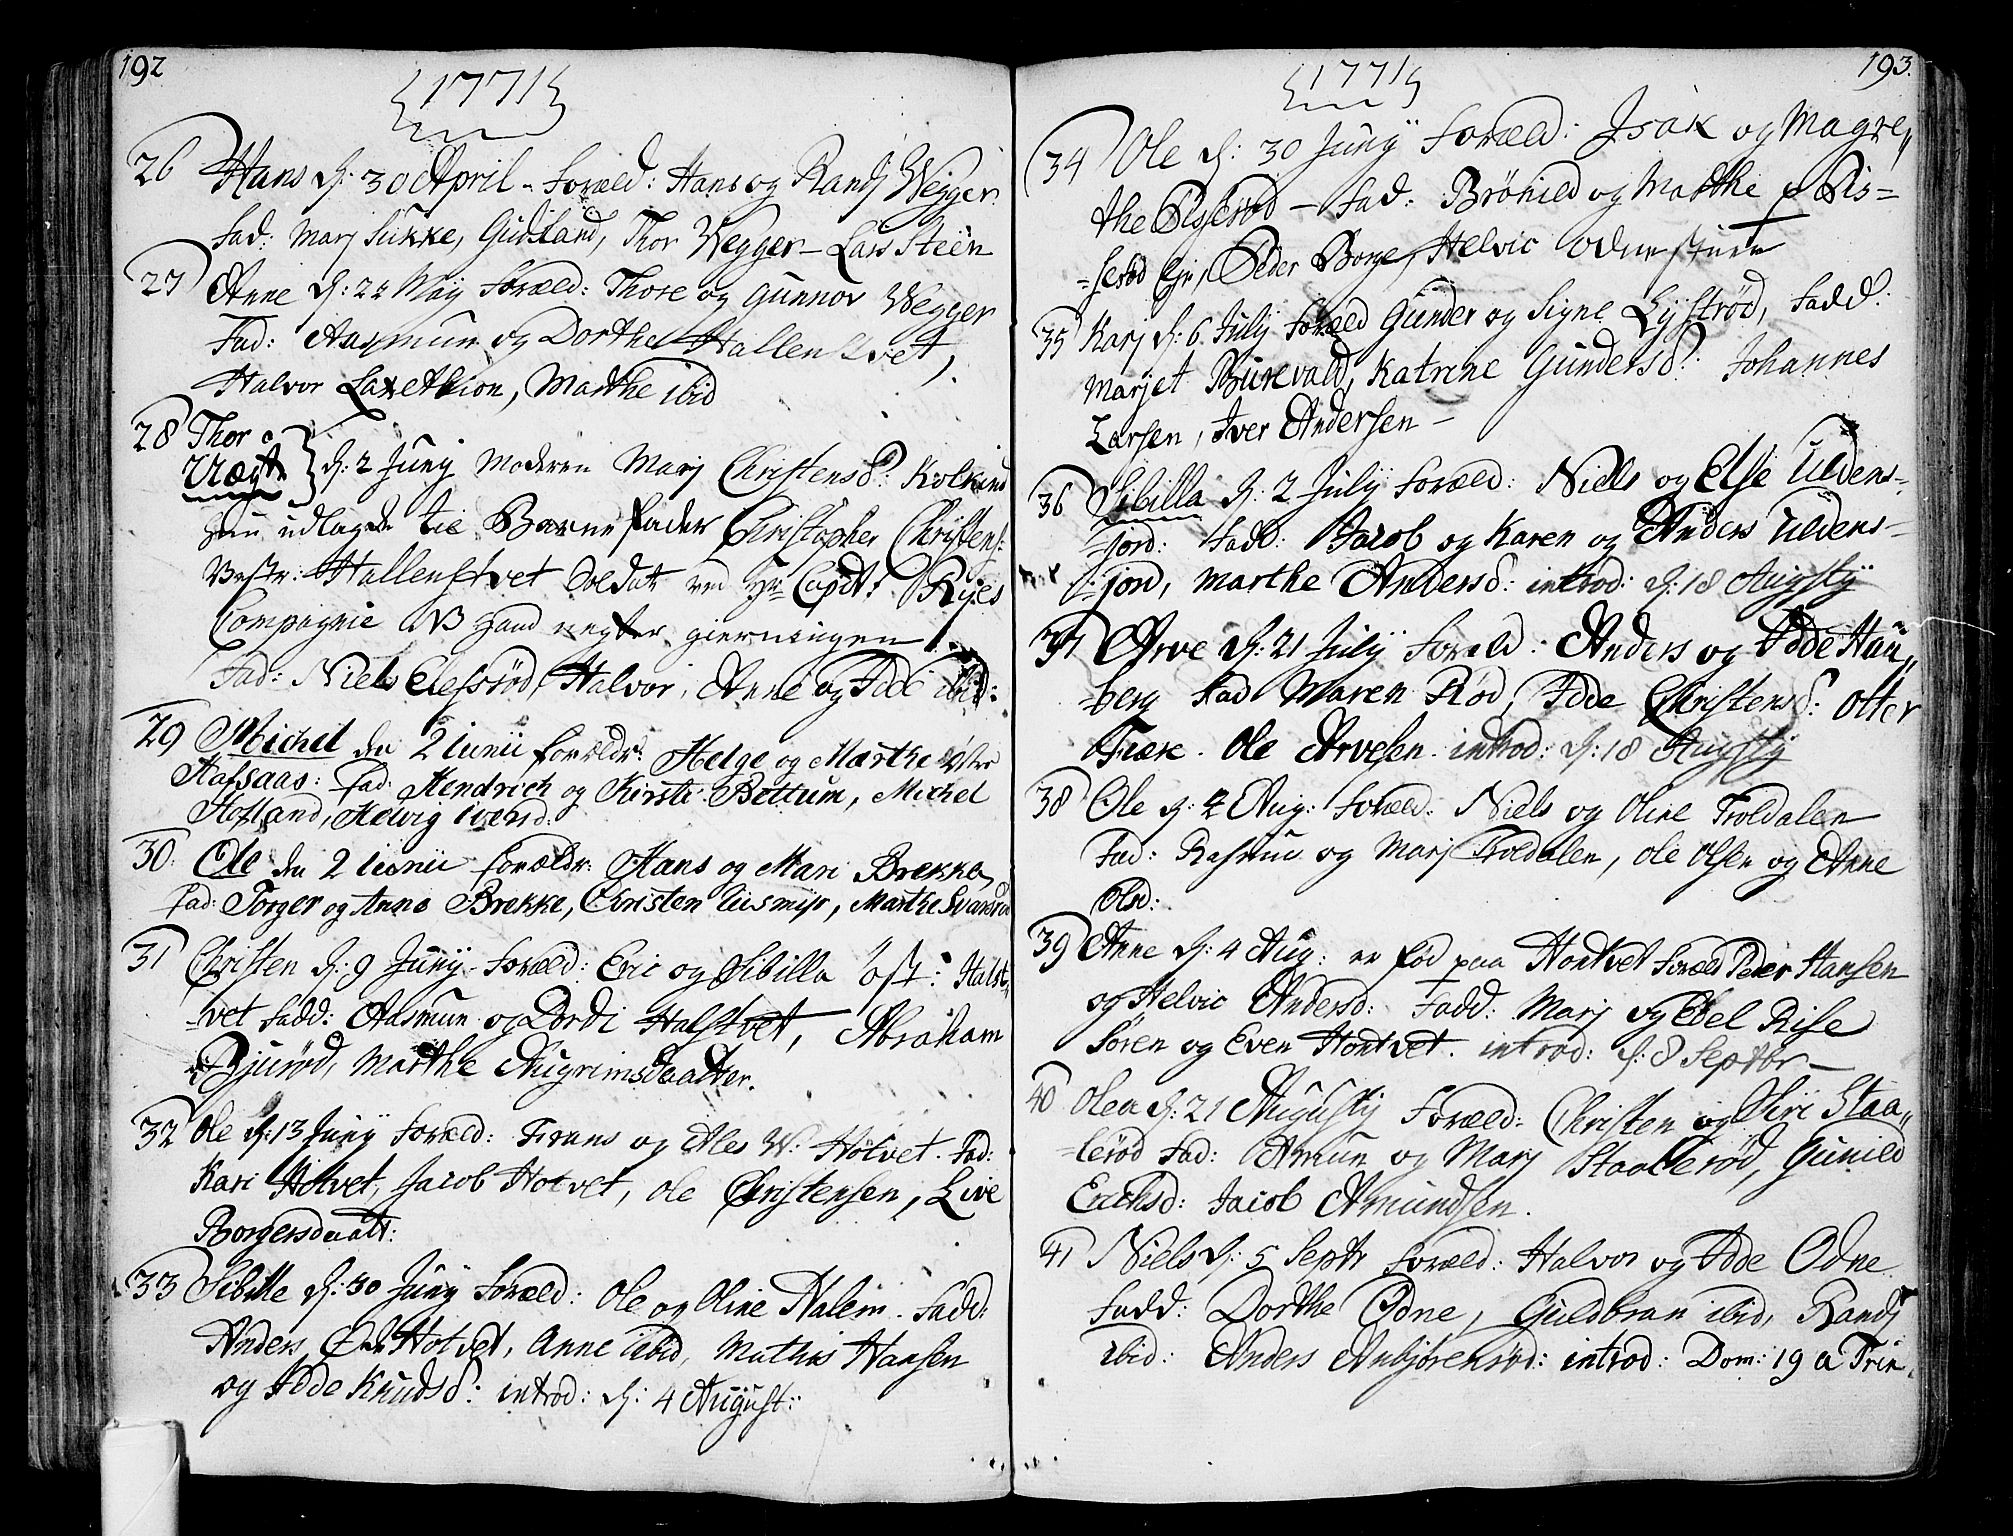 192
1771
26 Hans d: 30 April - Foræld: Hans og Randj Wegger
Fad: Marj Sukke, Gudland, Thor Wegger - Lars Steen
27 Anne d: 22 Maÿ Foræld: Thore og Gunnor Wegger
Fad: Aasmun og Dorthe Hallenstvet,
Halvor, Marthe ibid
28 Thor
Uægte d: 2 Junÿ Moderen Marj Christensd:
hun udlagde til Barnefader Christopher Christens:
Hallenstvet Soldat ved Hr Capit: Rÿes
Compagnie NB hand negter gierningen
Fad: Niels Elefsrød, Halvor, Anne og Idde ibid:
29 Michel den 2 iunii forældr: Helge og Marthe Østre
Hafsaas: fad: Hendrich og Kirsti Bettum, Michel
Holland, Helvig iversd:
30. Ole den 2 iunii forældr: Hans og Mari Brekke,
fad: Torger og Anne Brekke, Christen Uismÿr, Marthe
31 Christen d: 9 Junÿ - Foræld: Eric og Sibilla øst: Halst-
-vet Fadd: Aasmun og Dordi Halstvet, Abraham
Bjurød, Marthe Augrimsdaatter.
32 Ole d: 13 Junÿ Foræld: Frans og Ales W: Holvet. Fad:
Kari Holvet, Jacob Holvet, Ole Christensen, Live
Borgersdaatt:
33 Sibille d: 30 Junÿ Foræld: Ole og Oline Halem. Fadd:
Anders Holvet, Anne ibid, Mathis Hansen
og Idde Knudsd: introd: d: 4 August:
193.
1771
34 Ole d: 30 Junÿ Foræld: Isak og Magre„
the Bisserød - Fad: Brønild og Marthe Bis=
=serød Eje, Peder Borge, Helvic Odnestuen
35 Karj d: 6 Julÿ Foræld Gunder og Signe Lystrød, Fadd:
Marjet Burevald, Katrine Gundersd: Johannes
Larsen, Iver Andersen -
36 Sibilla d: 2 Julÿ Foræld: Niels og Else Uldens-
-jord: Fadd: Jacob og Karen og Anders Uldens-
-jord, Marthe Andersd: introd: d: 18 Augstÿ
37 Arve d: 21 Julÿ Foræld: Anders og Idde Hau„
berg Fad Maren Rød, Idde Christensd: Otter
Fiære. Ole Arvesen. introd: d: 18 Augstÿ
38 Ole d: 4 Aug: Foræld: Niels og Oline Troldalen
Fad: Rasmus og Marj Troldalen, Ole Olsen og Anne
Olsd:
39 Anne d: 4 Aug: er fød paa Hontvet Foræld Peder Hansen
og Helvic Andersd: Fadd: Marj og Ebel Rise
Søren og Even Hontvet. introd: d: 8 Septbr -
40 Olea d: 21 Augustÿ Foræld: Christen og Siri Staa„
-lerød Fad: Amun og Marj Staalerød, Gunild
Erichsd: Jacob Amundsen.
41 Niels d: 5 Septr Foræld: Halvor og Idde Odne
Fadd: Dorthe Odne, Guldbran ibid, Randj
ibid: Anders Anbjørensrød: introd: Dom: 19 a Trin.